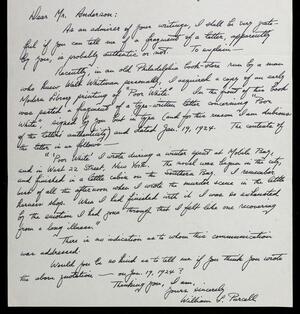 Dear Mr. Anderson:
As an admirer of your writings, I shall be very grate-
ful if you can tell me if a fragment of a letter, apparently
by you, is probably authentic or not. To explain —
Recently, in an old Philadelphia book-store run by a man
who knew Walt Whitman personally, I acquired a copy of an early
Modern Library printing of "Poor White". In the front of this book
was pasted a fragment of a type-written letter concerning Poor
White, signed by you but in type (and for this reason I am dubious
of the letter's authenticity) and dated Jan. 19, 1924. The contents of
the letter is as follows:
"'Poor White' I wrote during a winter spent at Mobile Bay,
and in West 22 Street, New York. The novel was begun in the city,
and finished in a little cabin on the Southern Bay. I remember
best of all the afternoon when I wrote the murder scene in the little
harness shop. When I had finished with it I was so exhausted
by the emotion I had gone through that I felt like one recovering
from a long illness."
There is no indication as to whom this communication
was addressed.
Would you be so kind as to tell me if you think you wrote
the above quotation — on Jan. 19, 1924?
Thanking you, I am,
Yours sincerely,
William Purcell